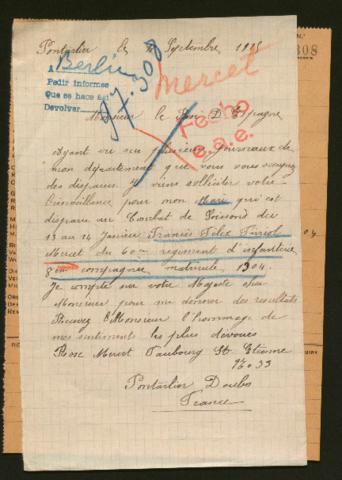 Pontarlier le 7 Septembre 1915
A Berlin
Pedir informes
Que se hace así
Devolver
97.308
Mercet
308
Monsieur le Roi D'Espagne
Fecho
e.a.e.
Ayant vu sur plusieurs journaux de
mon département que vous vous occupez
des disparus je viens solliciter votre
bienveillance pour mon Mari qui est
disparu au Combat de Soissons des
13 au 14 Janvier Francis Felix
Mercet du 60me régiment d'infanterie
8eme compagnie matricule 1904
Je compte sur votre Majesté
Monsieur pour me donner des resultats
Recevez Monsieur l'hommage de
mes sentiments les plus dévoués
Mercet Faubourg St Etienne
No 33
Pontarlier Doubs
France